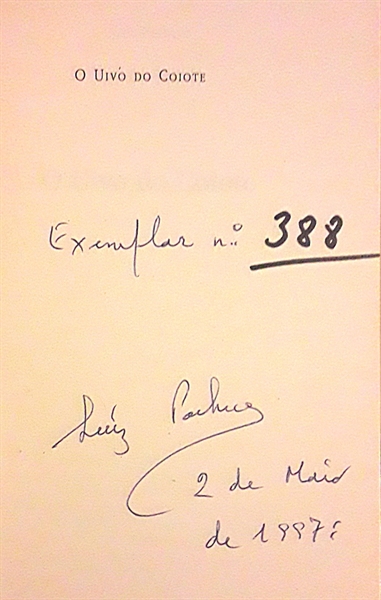 O UIVO DO COIOTE
Exemplar n.º 388
Luiz Pacheco
2 de Maio
de 1997